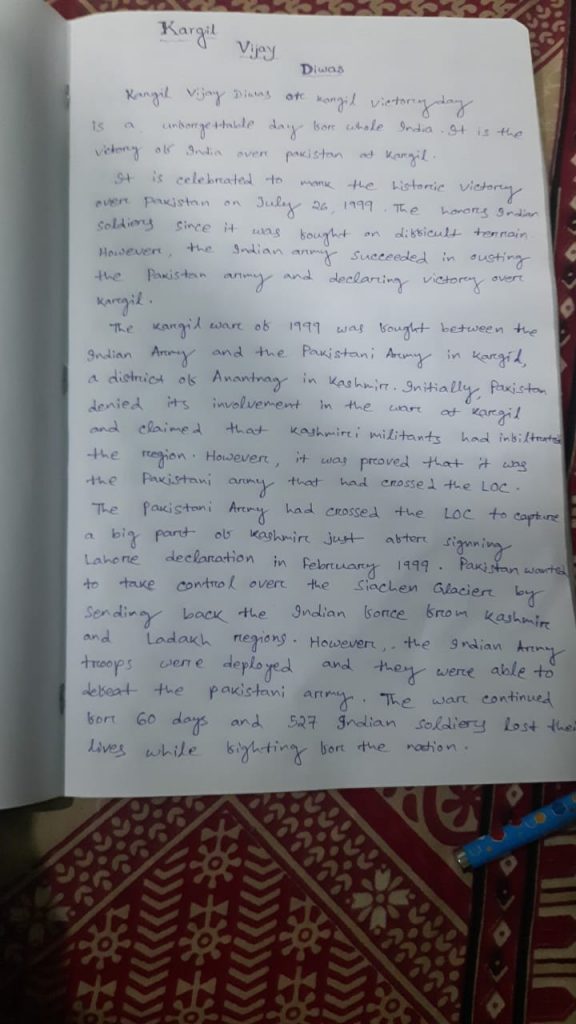 Kargil
Vijay
Diwas
Kargil Vijay Diwas or kargil victory day
is a unforgettable day for whole India. It is the
victory of India over pakistan at Kargil.
It is celebrated to mark the historic victory
over Pakistan on July 26, 1999. The honors Indian
soldiers since it was fought on difficult terrain.
However, the Indian army succeeded in ousting
the Pakistan army and declaring victory over
Kargil.
The kargil war of 1999 was fought between the
Indian Army and the Pakistani Army in Kargil,
a district of Anantnag in Kashmir. Initially, Pakistan
denied its involvement in the war at kargil
and claimed that Kashmiri militants had infiltrated
the region. However, it was proved that it was
the Pakistani army that had crossed the LOC.
The Pakistani Army had crossed the LOC to capture
a big part of Kashmir just after signning
Lahore declaration in February 1999. Pakistan wanted
to take control over the Siachen Glacier by
sending back the Indian force from Kashmir
and Ladakh regions. However, the Indian Army
troops were deployed and they were able to
defeat the pakistani army. The war continued
for 60 days and 527 Indian soldiers lost their
lives while fighting for the nation.